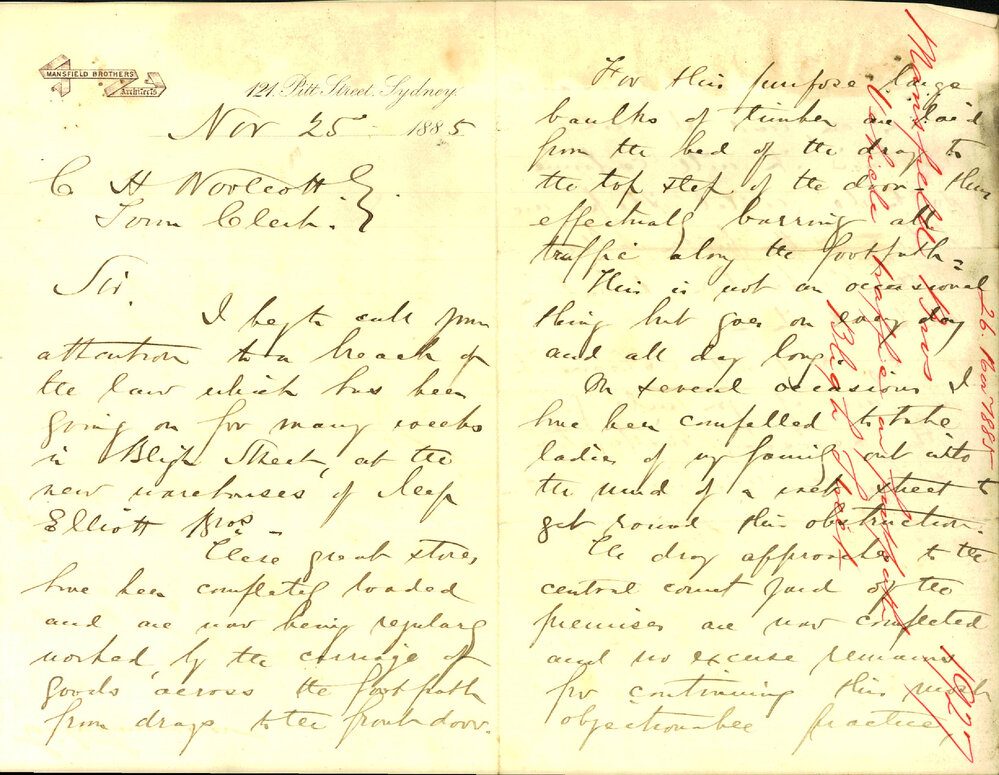 MANSFIELD BROTHERS
Architects
121 Pitt Street, Sydney.
Nov 25 1885
C H Woolcott
Town Clerk.
Sir.
I beg to call your
attention to a breach of
the law which has been
going on for many weeks
in Bligh Street, at the
new warehouses of
Elliott Bros -
These great stores,
have been completely loaded
and are now being regularly
worked by the carriage of
goods across the footpath
from drays to the front door.
For this purpose large
baulks of timber are laid
from the bed of the dray to
the top step of the door - thus
effectually barring all
traffic along the footpath -
This is not an occasional
thing but goes on every day
and all day long.
On several occasions I
have been compelled to take
ladies of my family out into
the mud of a wet street to
get round this obstruction.
The dray approaches to the
central court yard of the
premises are now completed
and no excuse remains
for continuing this most
objectionable practice,
Mansfield Bros
Vehicle traffic on footpath
Bligh Street
26 Nov 1885
1927